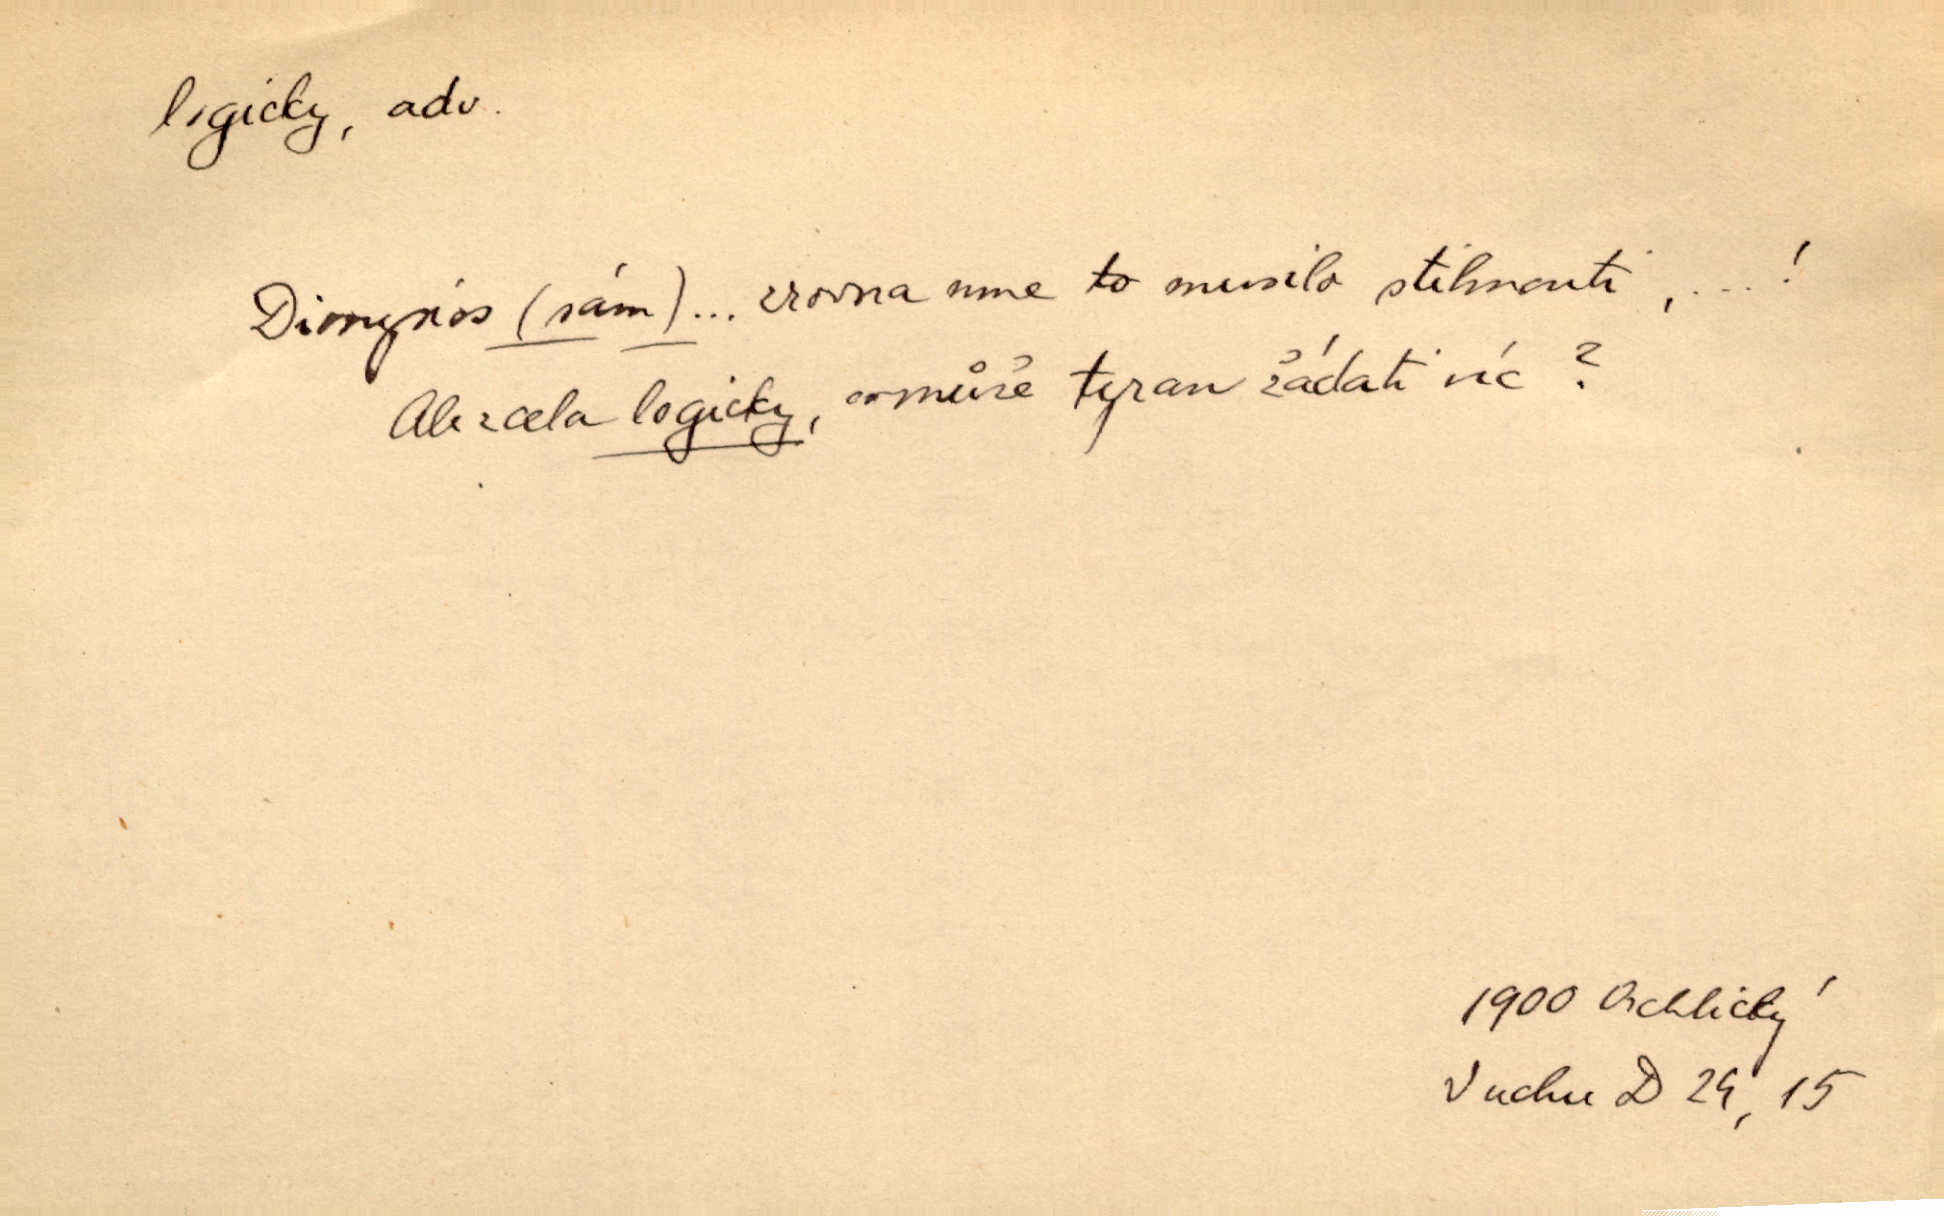 logicky, adv.
Dionysios (sám)... zrovna mne to musilo stihnouti, ...!
Ale zcela logicky, co může tyran žádati víc?
1900 Vrchlický
V uchu D 29, 15